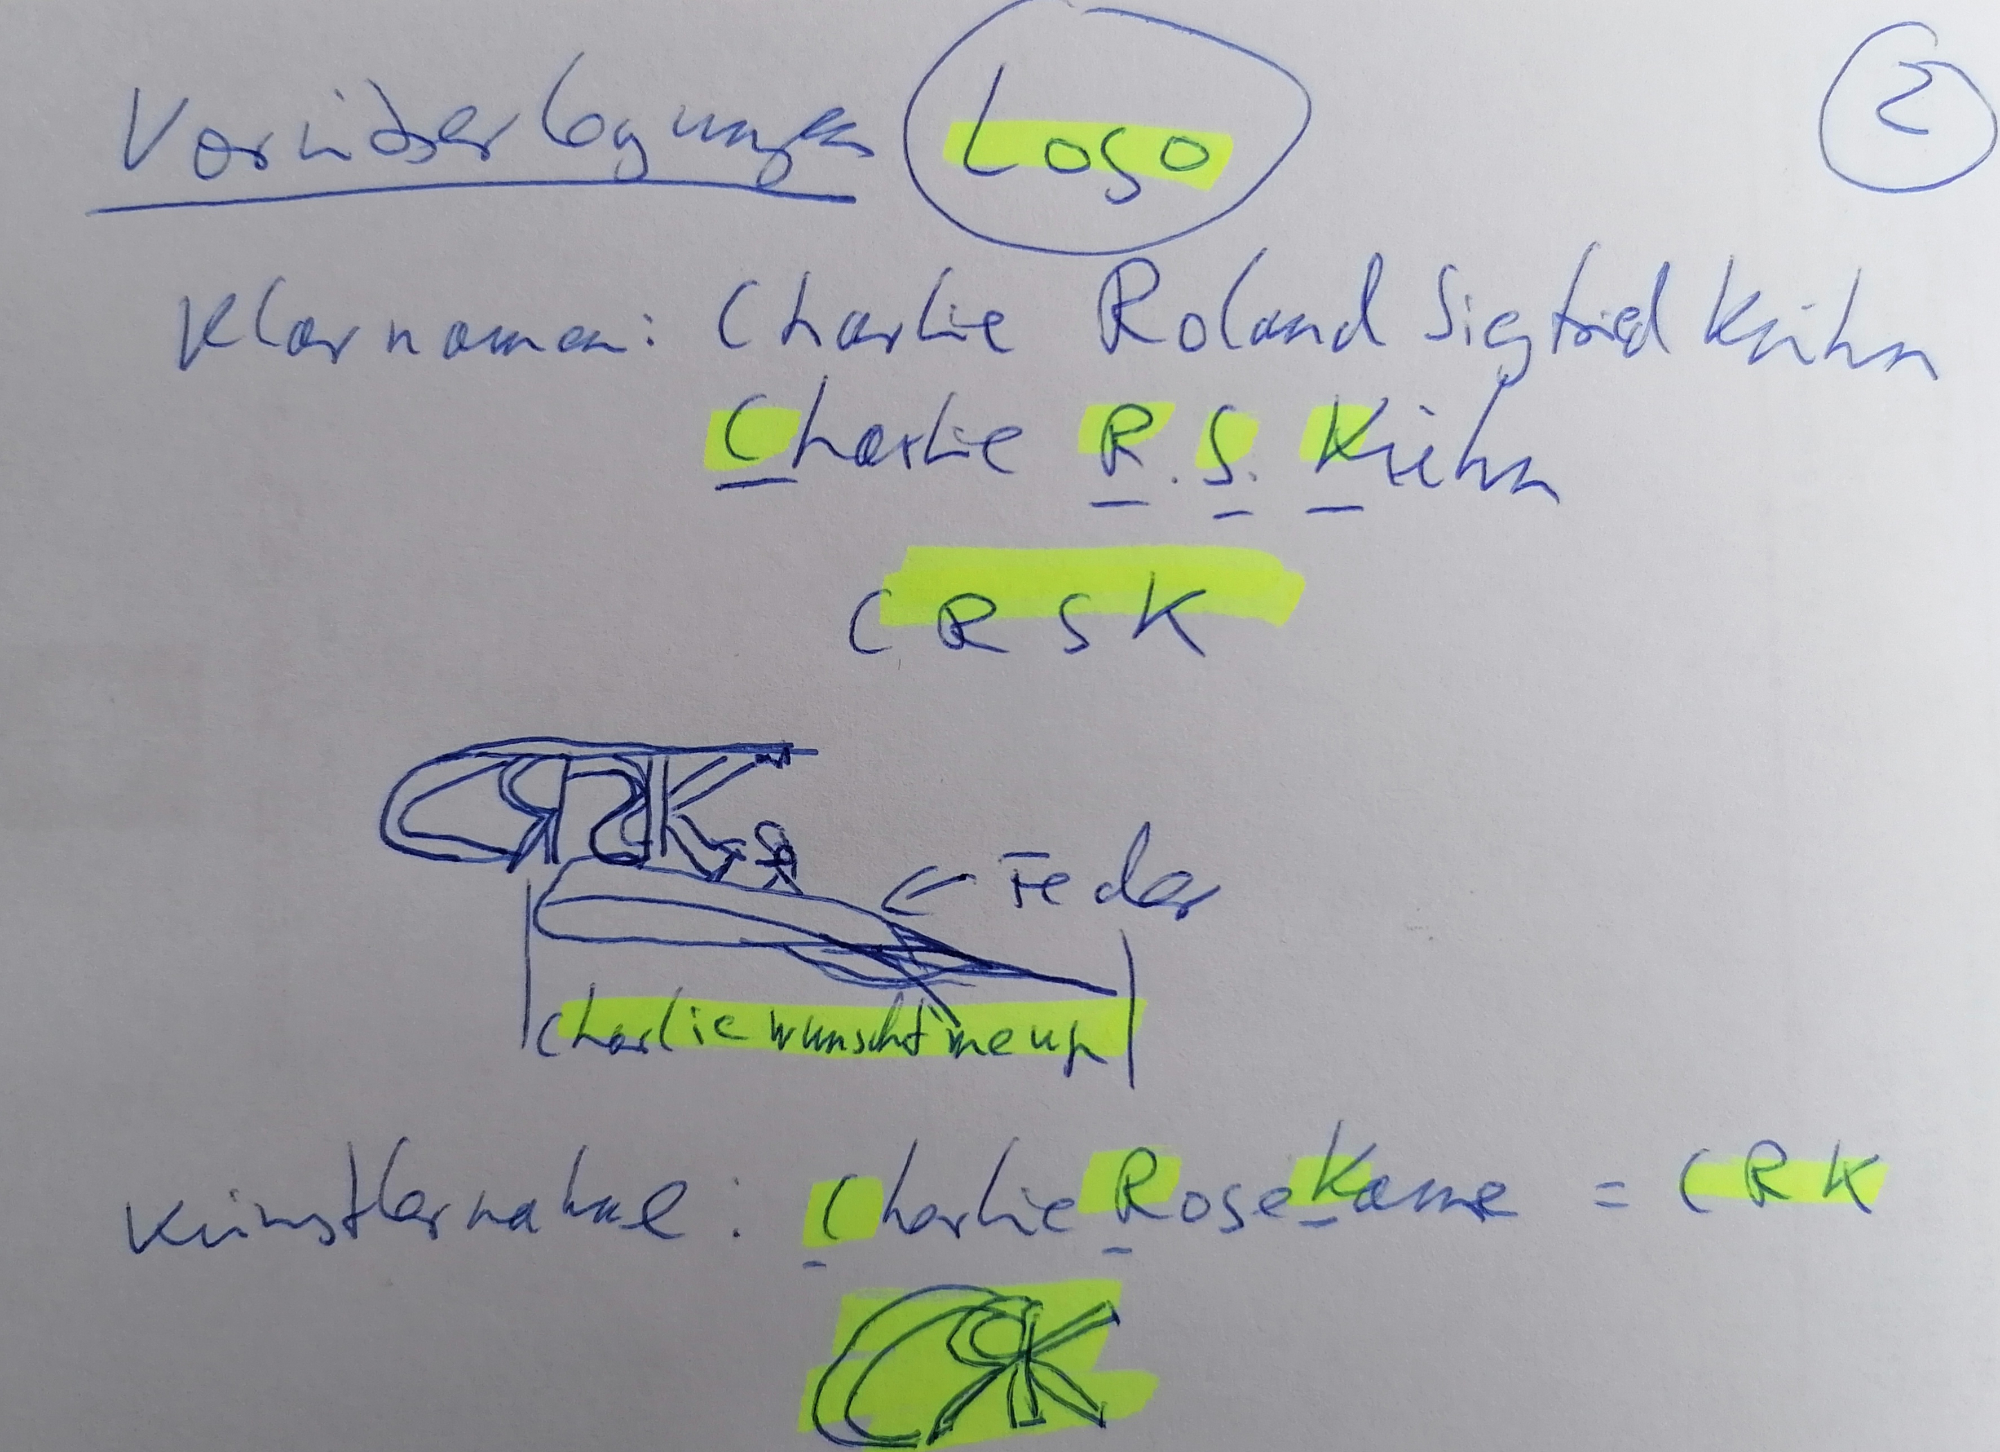 Vorüberlegungen Logo
2
Klarnamen: Charlie Roland Siegfried Kühn
Charlie R. S. Kühn
CRSK
CRSK
← Feder
Charlie wunscht me up
Künstlername: Charlie Rose Kame = CRK
CRK